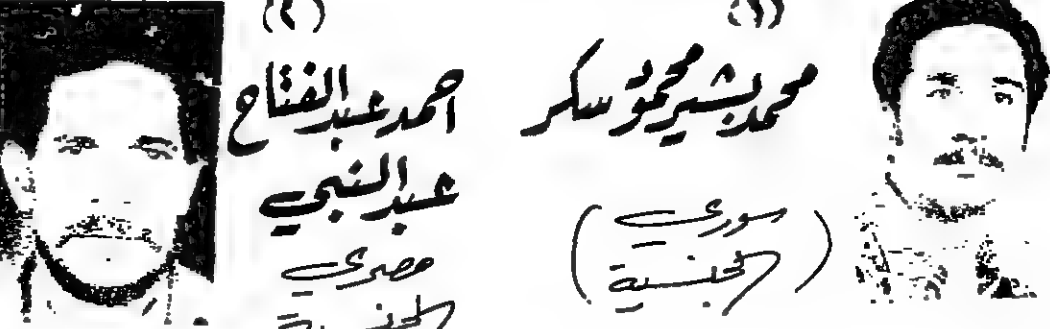 (١)
محمد بشير محمود سكر
(سوري
الجنسية)
(٢)
احمد عبد الفتاح
عبد النبي
مصري
الجنسية